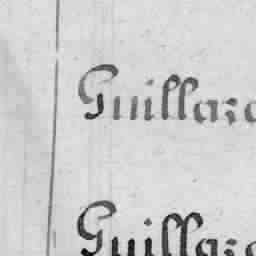 Guillaz
Guillaz